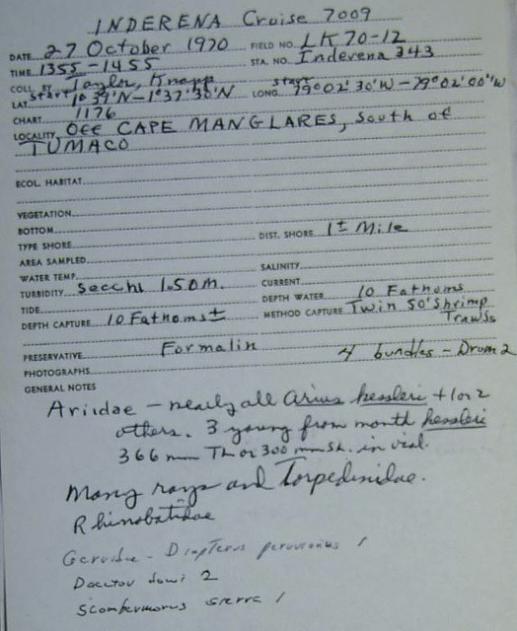 INDERENA Cruise 7009
DATE 27 October 1970 FIELD NO. LK 70-12
TIME 1355-1455 STA. NO. Inderena 343
COLL. BY Taylor, Knapp
LAT. start 1°39'N-1°37'30"N LONG. start 79°02'30"W-79°02'00"W
CHART 1176
LOCALITY Off CAPE MANGLARES, South of
TUMACO
ECOL. HABITAT
VEGETATION
BOTTOM DIST. SHORE 1± Mile
TYPE SHORE
AREA SAMPLED
WATER TEMP. SALINITY
TURBIDITY Secchi 1.50m. CURRENT
TIDE DEPTH WATER 10 Fathoms
DEPTH CAPTURE 10 Fathoms± METHOD CAPTURE Twin 50' Shrimp
Trawls
PRESERVATIVE Formalin 4 bundles - Drum 2
PHOTOGRAPHS
GENERAL NOTES
Ariidae - nearly all Arius kessleri + 1 or 2
others. 3 young from mouth kessleri
366 mm TL or 300 mm St. in vial.
Many rays and Torpedinidae.
Rhinobatidae
Gerridae - Diapterus peruvianus 1
Daector dowi 2
Scomberomorus sierra 1